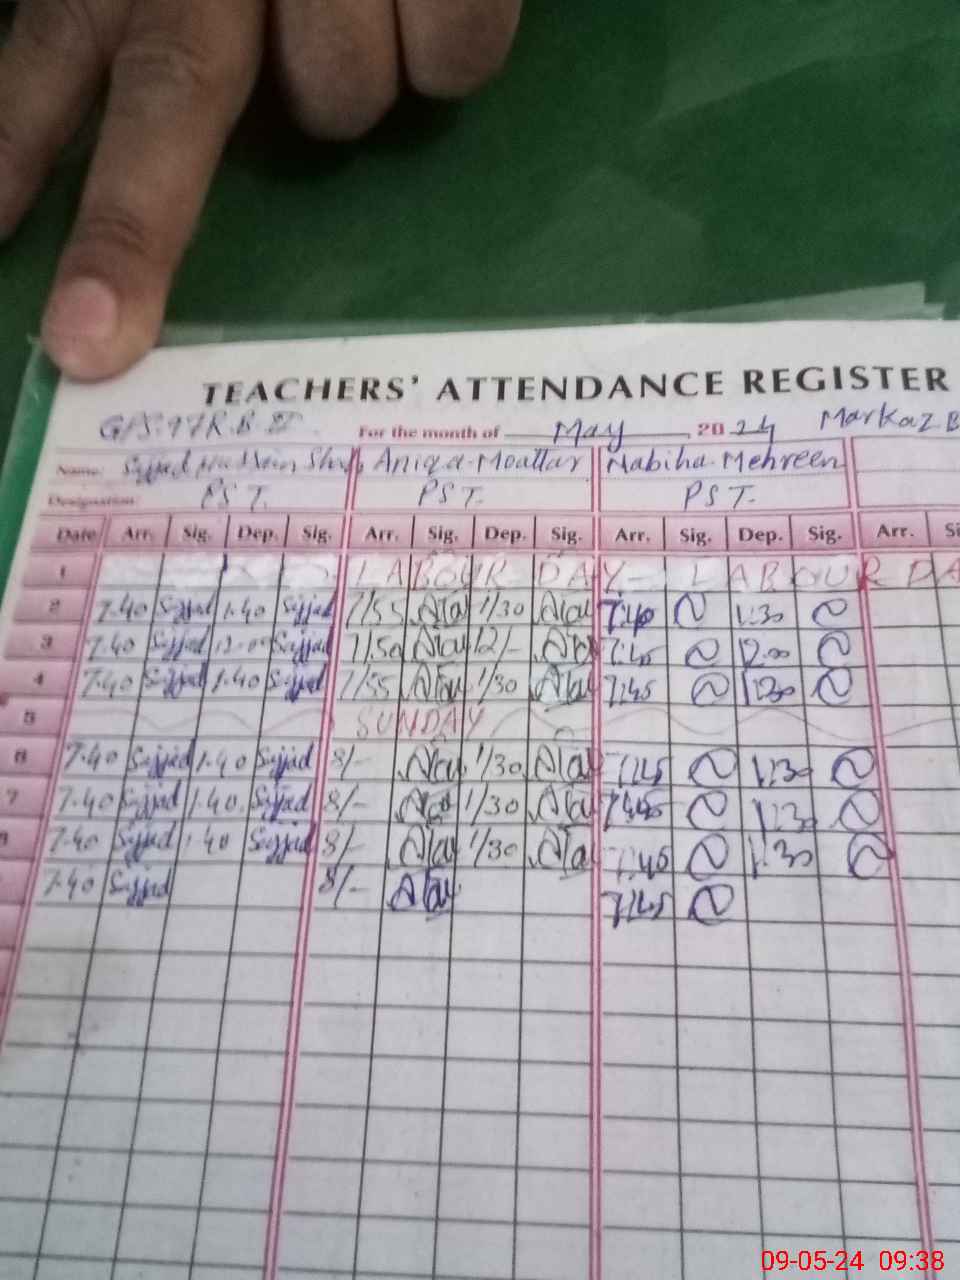 TEACHERS' ATTENDANCE REGISTER
GPS. 97 R.B. II For the month of May, 2024 Markaz. B
Name: Sajjad Hussain Shah Aniqa-Moattar Nabiha-Mehreen
Designation: PST. PST. PST.
Date Arr. Sig. Dep. Sig. Arr. Sig. Dep. Sig. Arr. Sig. Dep. Sig. Arr. Si
1 LABOUR DAY - LABOUR DA
2 7.40 Sajjad 1.40 Sajjad 7/55 1/30 7:40 1:30
3 7.40 Sajjad 12.00 Sajjad 7/50 12/- 7:45 12:00
4 7.40 Sajjad 1.40 Sajjad 7/55 1/30 7:45 1:30
5 SUNDAY
6 7.40 Sajjad 1.40 Sajjad 8/- 1/30 7:45 1:30
7 7.40 Sajjad 1.40 Sajjad 8/- 1/30 7:45 1:30
8 7.40 Sajjad 1.40 Sajjad 8/- 1/30 7:45 1:30
7.40 Sajjad 8/- 7:45
09-05-24 09:38